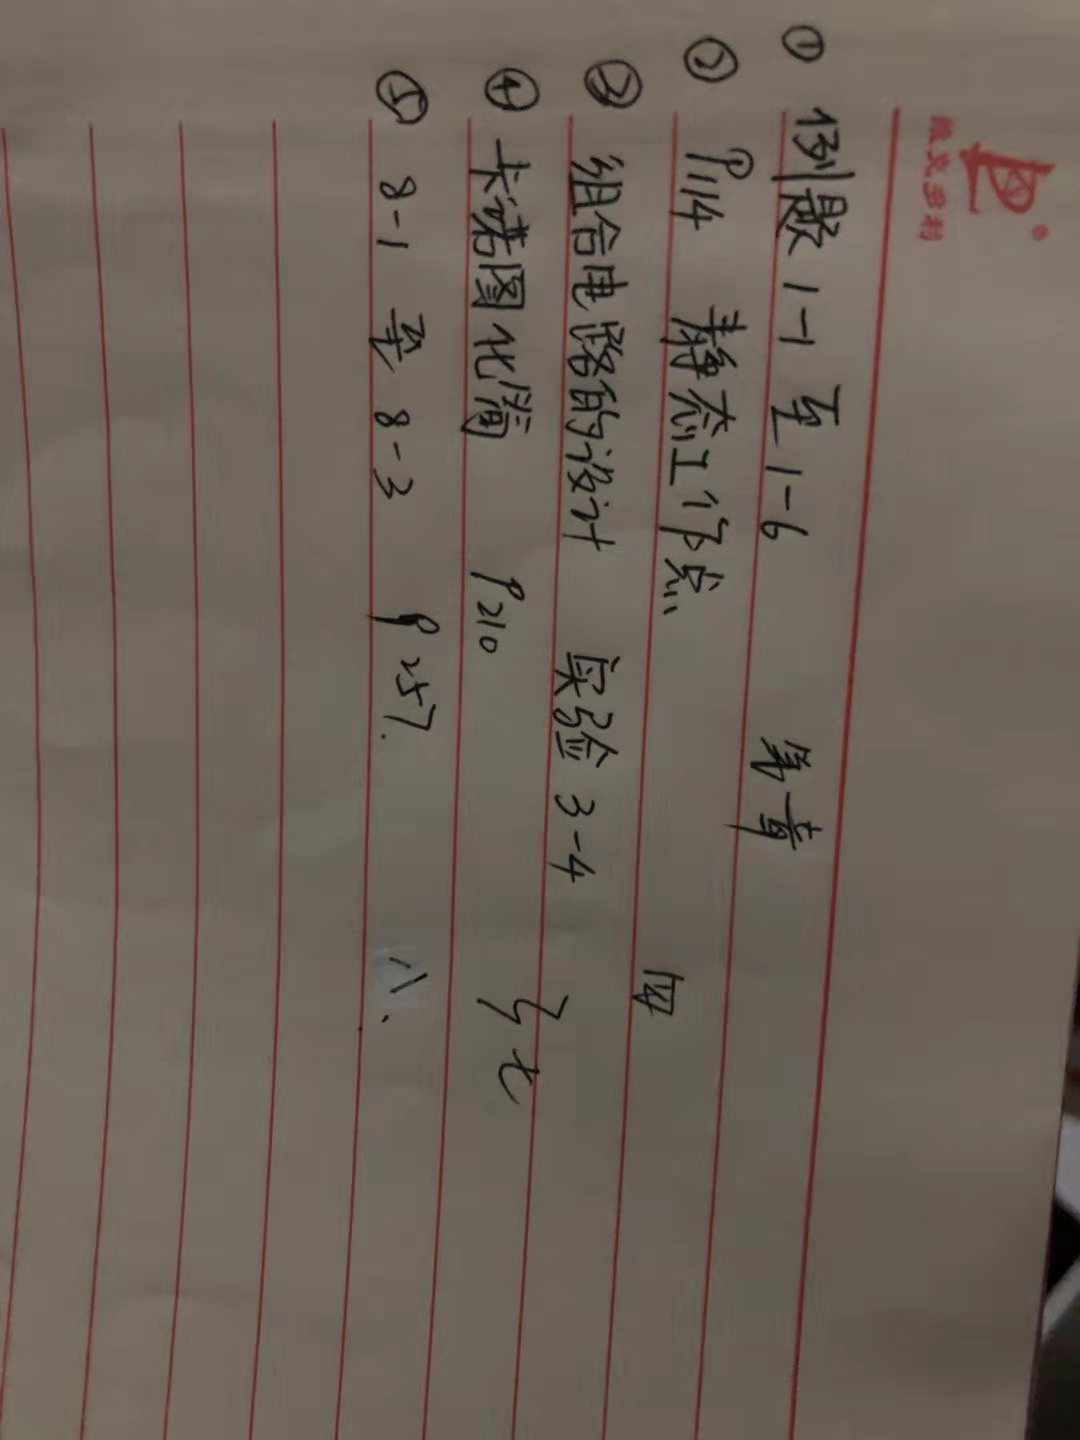 维克多利
① 例题 1-1 至 1-6 第一章
② P114 静态工作点 四
③ 组合电路的设计 实验 3-4
④ 卡诺图化简 P210 } 七
⑤ 8-1 至 8-3 P257. 八.